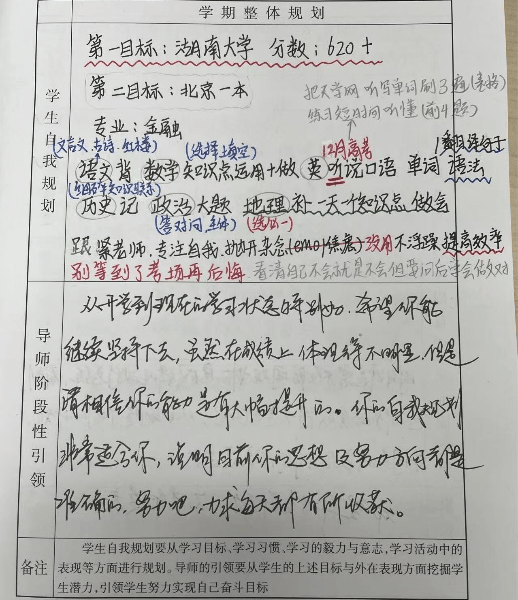 学期整体规划
学生自我规划
第一目标：湖南大学 分数：620+
第二目标：北京一本
把天学网 听写单词刷3遍(表格)
练习短时间听懂(前4题)
专业：金融
(文言文、古诗、红楼)
(选择填空)
12月高考
语文背 数学知识点运用+做 英听说口语 单词 语法
历史记 政治大题 地理补一天一个知识点 做会
(答对问、主体)
(选必一)
跟紧老师，专注自我，抛开杂念(emo)焦虑 没用 不浮躁 提高效率
别等到了考场再后悔 看清自己不会就是不会但要问后学会做对
导师阶段性引领
从开学到现在的学习状态特别好，希望你能
继续坚持下去，虽然在成绩上体现得不明显，但是
请相信你的能力是有大幅提升的。你的自我规划
非常适合你，说明目前你的思想及努力方向都是
准确的，努力吧，力求每天都有所收获。
备注
学生自我规划要从学习目标、学习习惯、学习的毅力与意志，学习活动中的
表现等方面进行规划。导师的引领要从学生的上述目标与外在表现方面挖掘学
生潜力，引领学生努力实现自己奋斗目标